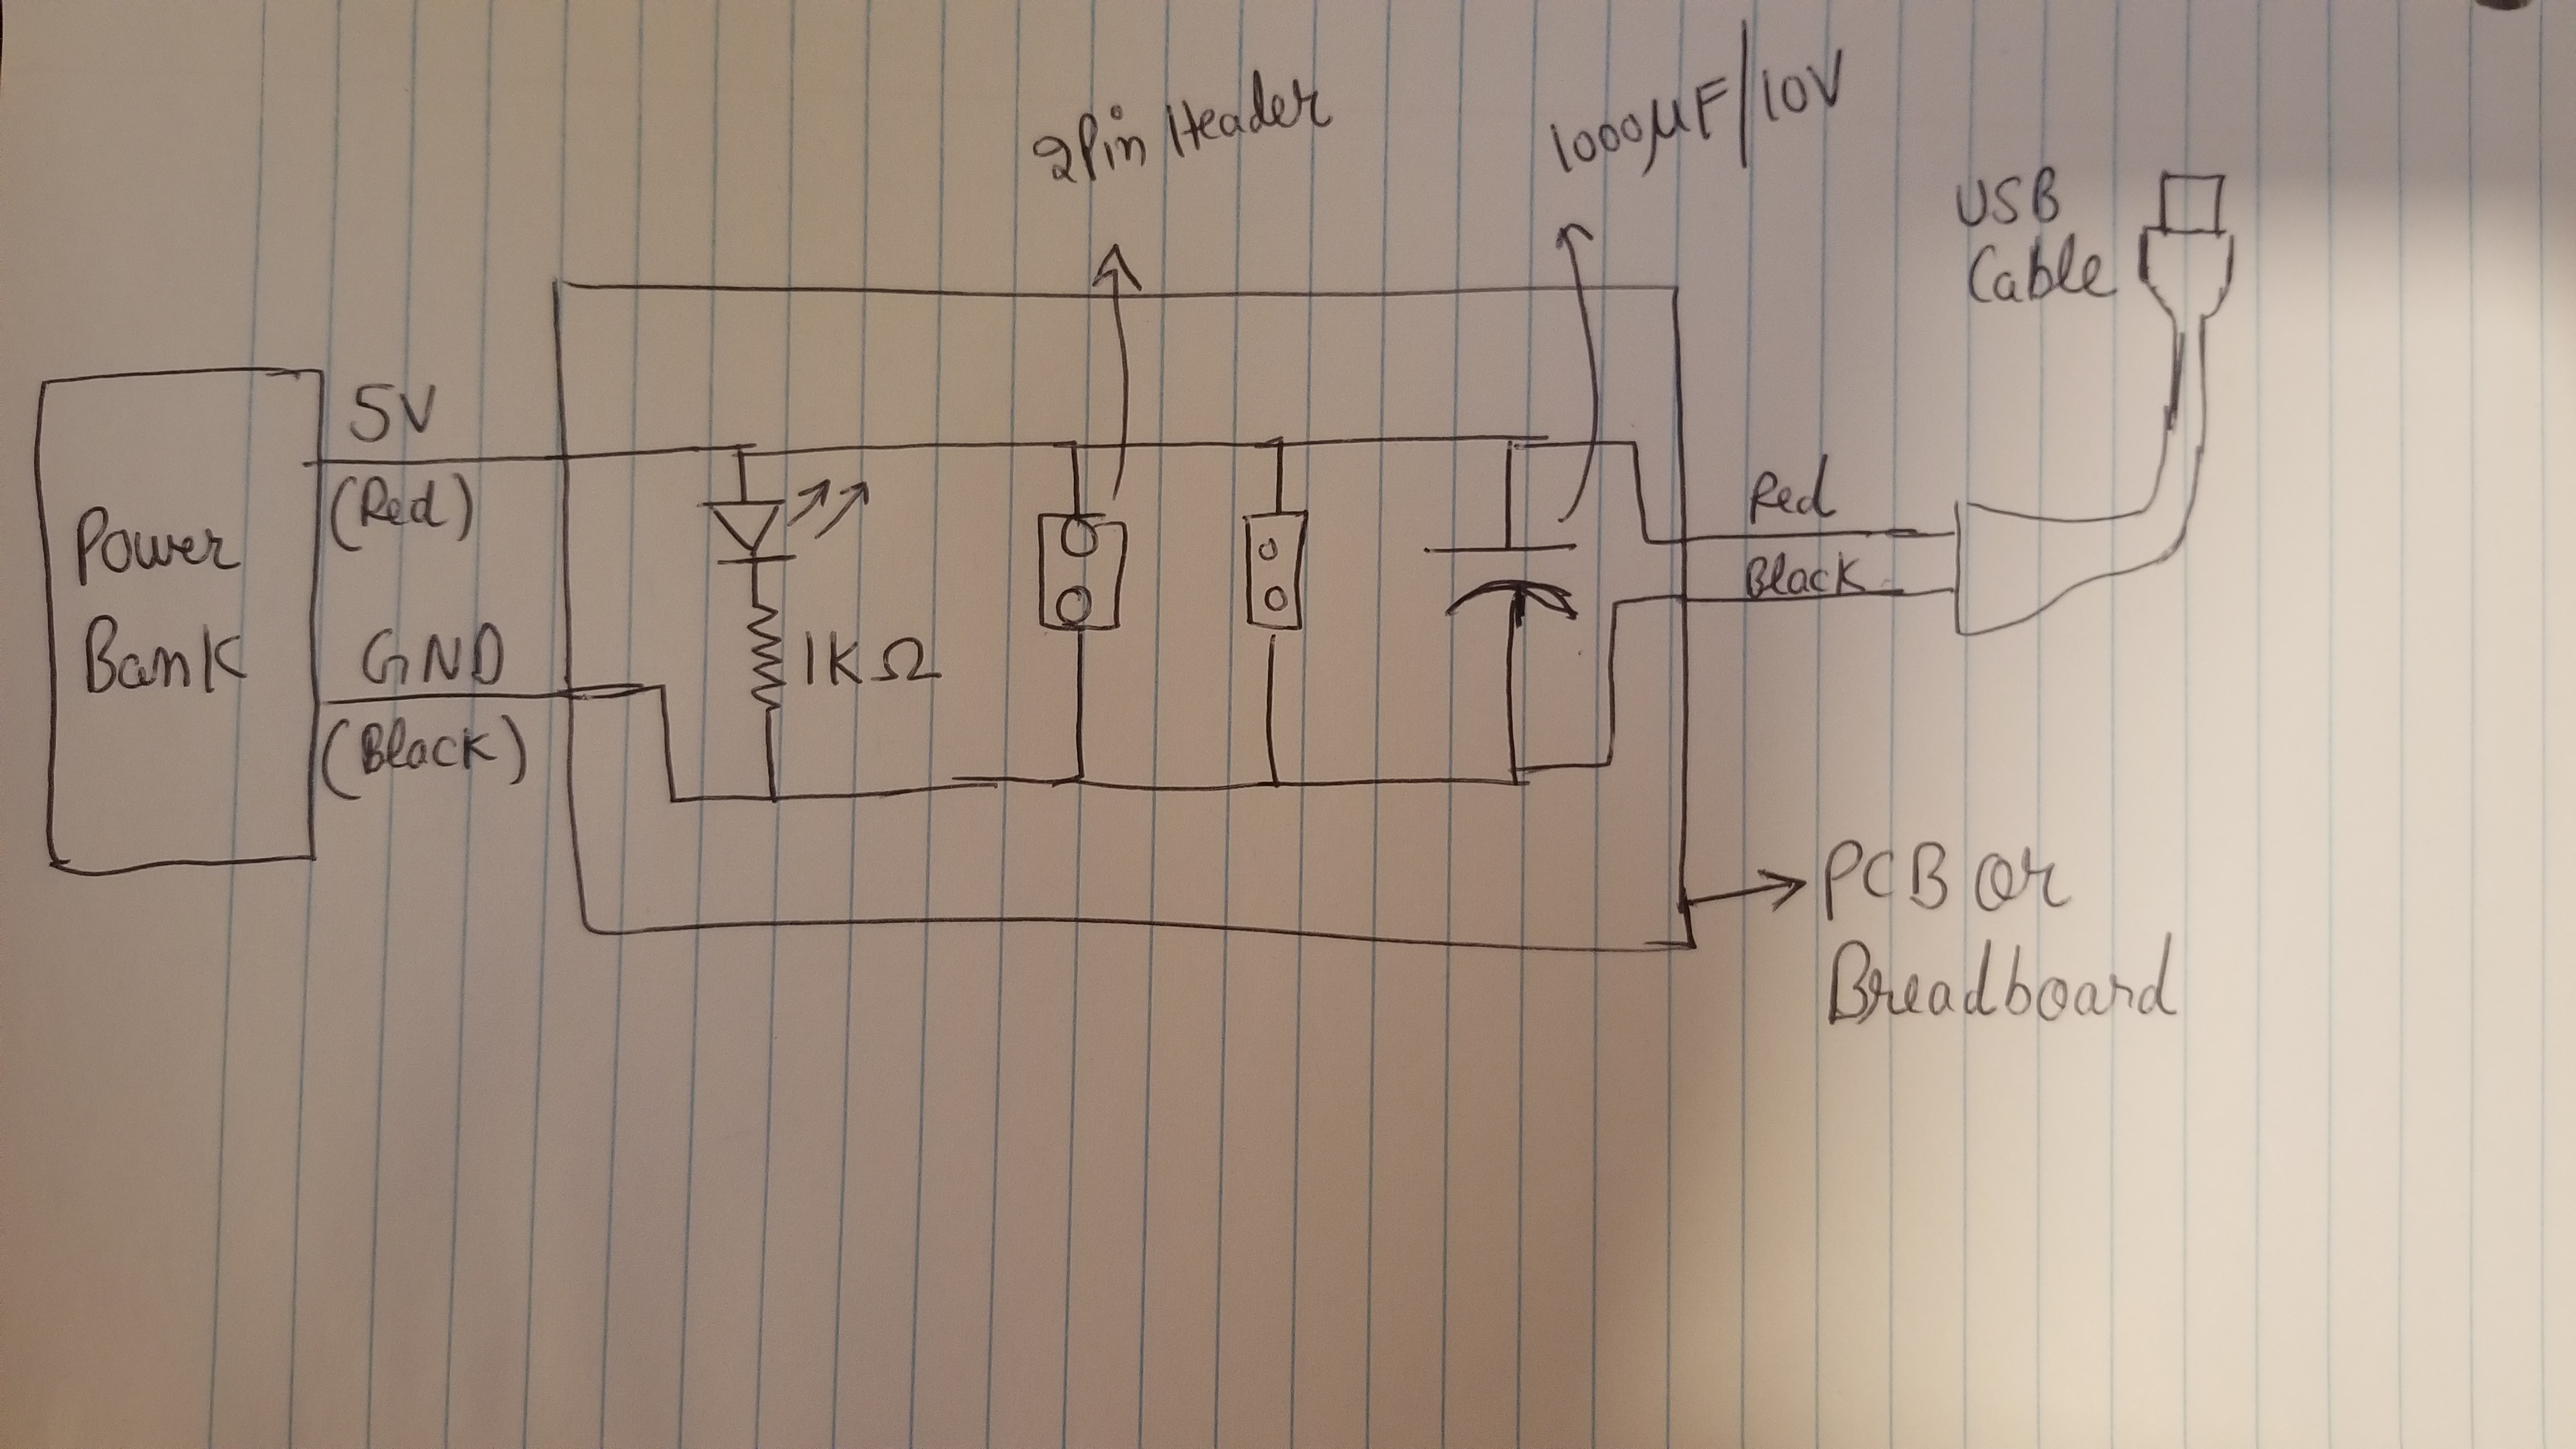 Power
Bank
5V
(Red)
GND
(Black)
1KΩ
2Pin Header
1000µF/10V
Red
Black
USB
Cable
PCB or
Breadboard